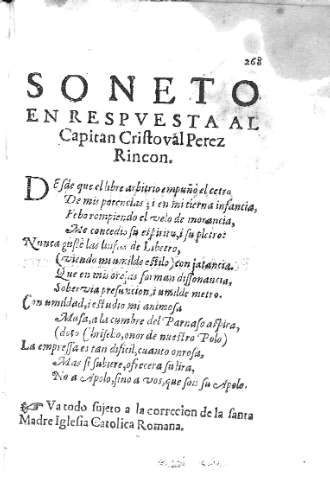 268
SONETO
EN RESPVESTA AL
Capitan Cristoval Perez
Rincon.
DEsde que el libre arbitrio empuñò el cetro
De mis potencias, i en mi tierna infancia,
Febo rompiendo el velo de inorancia,
Me concedio su espiritu, i su pletro:
Nunca gustè las de Libetro,
(viendo mi umilde estilo) con jatancia.
Que en mis orejas forman dissonancia,
Sobervia presuncion, i umilde metro.
Con umildad, i estudio mi animosa
Musa, a la cumbre del Parnaso aspira,
(doto Criselio, onor de nuestro Polo)
La empressa es tan dificil, cuanto onrosa,
Mas si subiere, ofrecera su lira,
No a Apolo, sino a vos, que sois su Apolo.
☞ Va todo sujeto a la correccion de la santa
Madre Iglesia Catolica Romana.